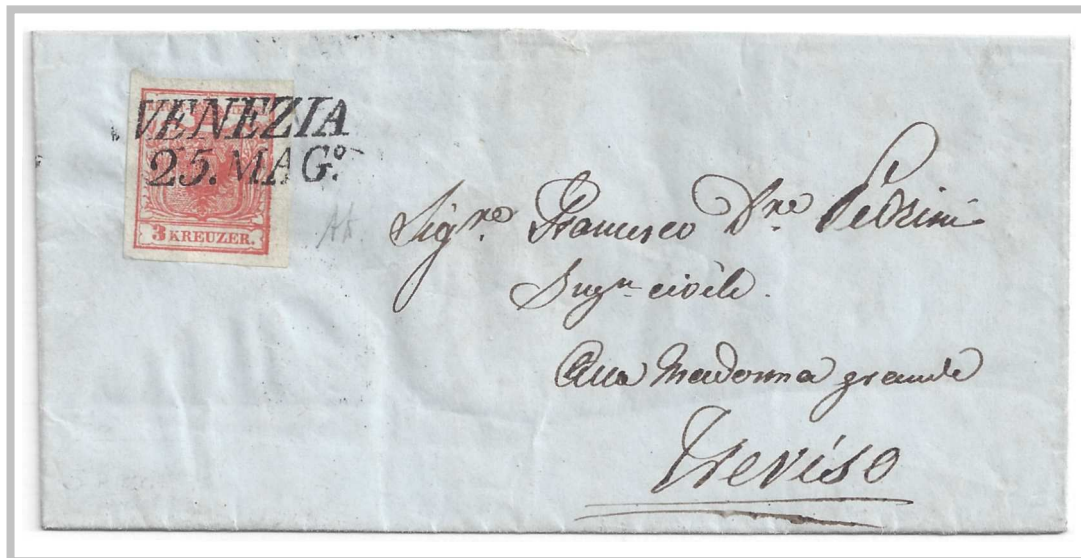 VENEZIA
25. MAG.º
3 KREUZER.
Sig.re Francesco D.re Pedrini
Ing.re civile.
Alla Madonna grande
Treviso